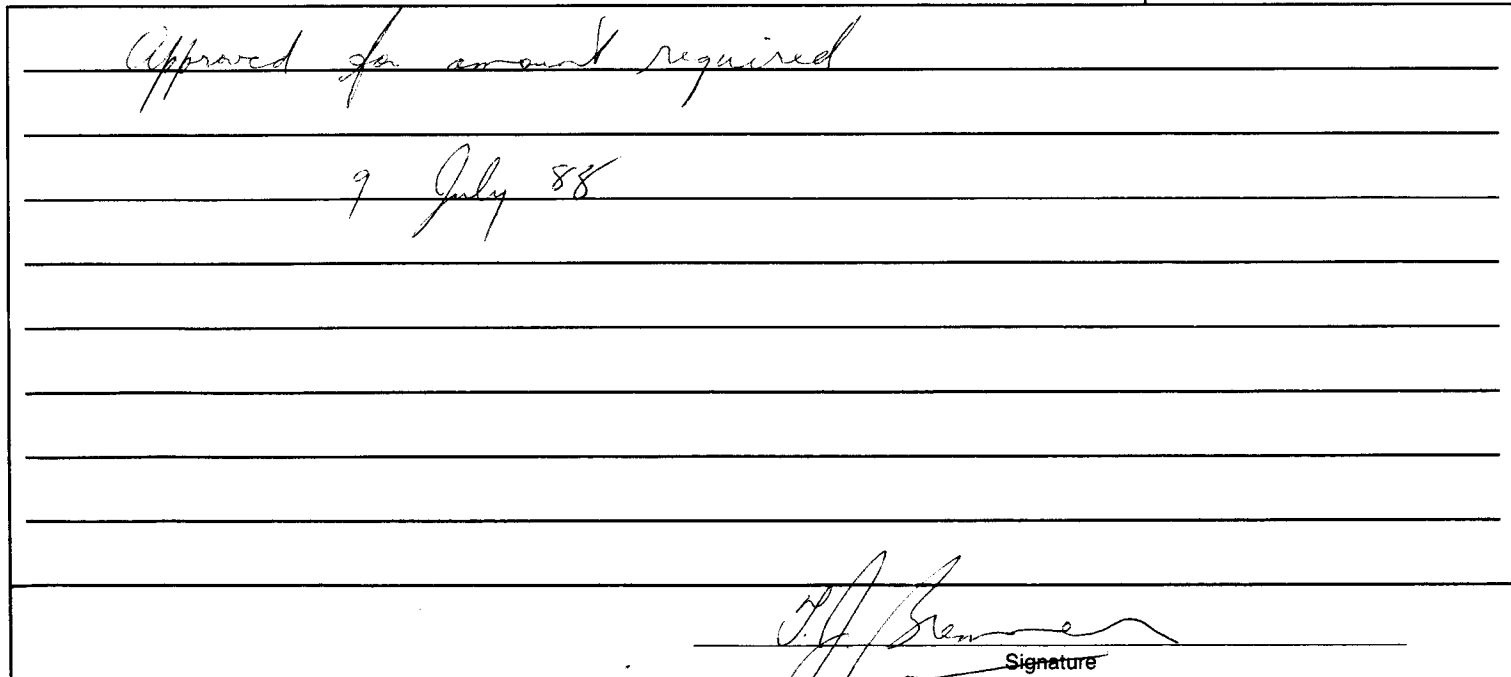 Approved for amount required
9 July 88
Signature